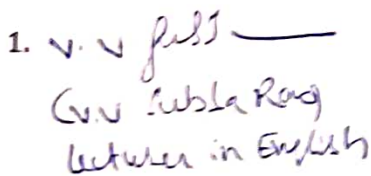 1. v. v
(v.v Subba Rao)
lecturer in English